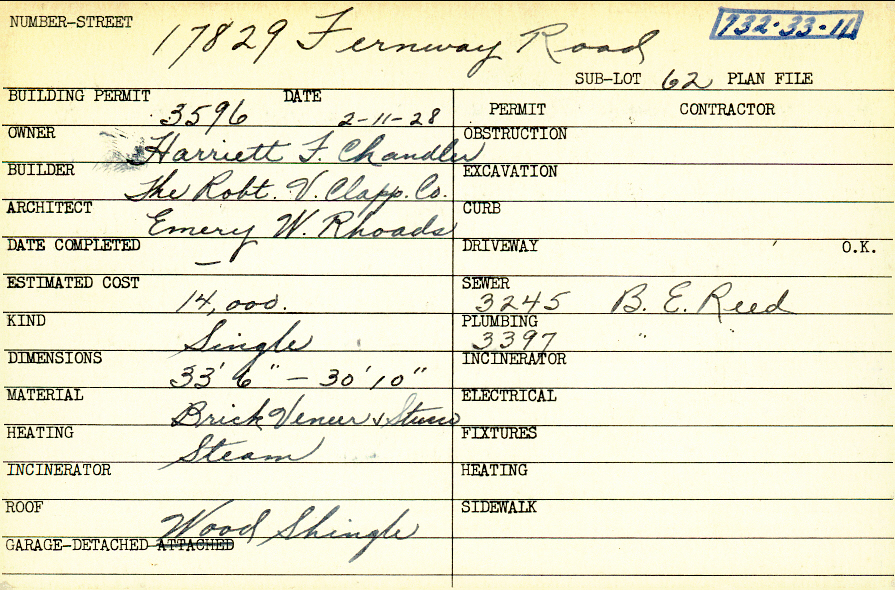 NUMBER-STREET 17829 Fernway Road 732-33-11
SUB-LOT 62 PLAN FILE
BUILDING PERMIT 3596 DATE 2-11-28
OWNER Harriett F. Chandler
BUILDER The Robt. V. Clapp. Co.
ARCHITECT Emery W. Rhoads
DATE COMPLETED —
ESTIMATED COST 14,000.
KIND Single
DIMENSIONS 33' 6" - 30' 10"
MATERIAL Brick Veneer & Stucco
HEATING Steam
INCINERATOR
ROOF Wood Shingle
GARAGE-DETACHED ATTACHED
PERMIT CONTRACTOR
OBSTRUCTION
EXCAVATION
CURB
DRIVEWAY O.K.
SEWER 3245 B. E. Reed
PLUMBING 3397 "
INCINERATOR
ELECTRICAL
FIXTURES
HEATING
SIDEWALK